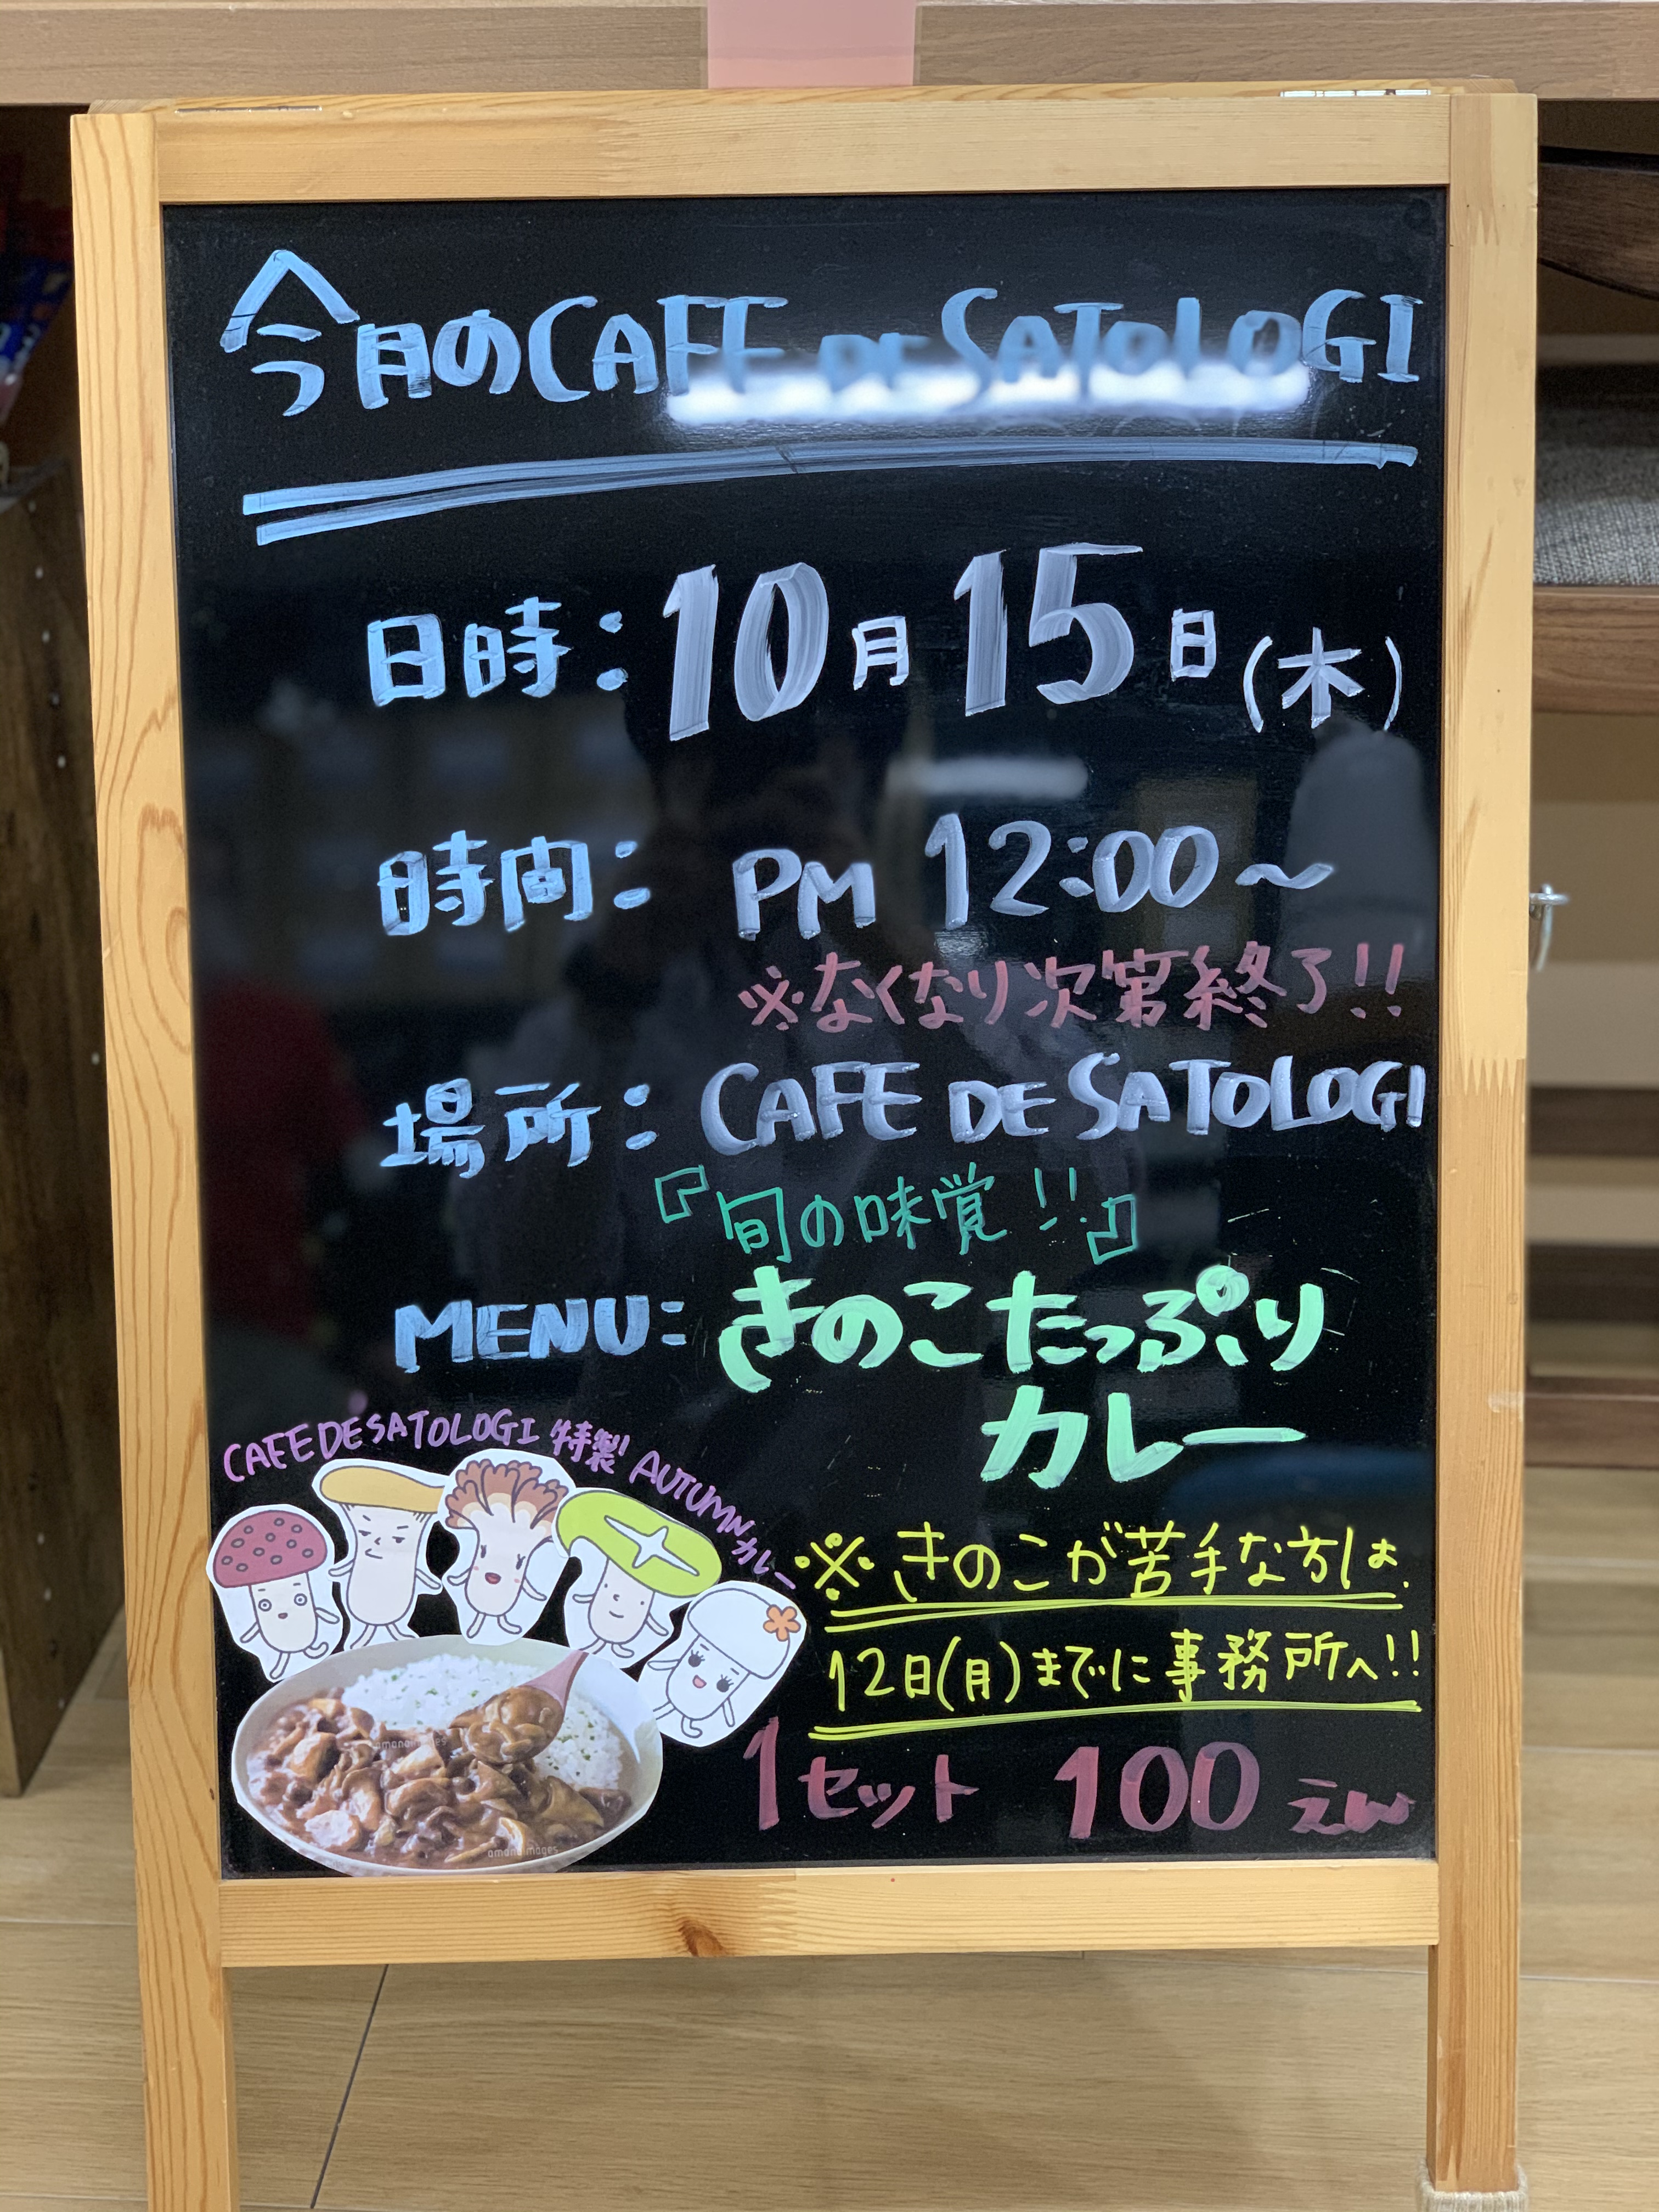 今月のCAFE DE SATOLOGI
日時：10月15日(木)
時間：PM 12:00～
※なくなり次第終了!!
場所：CAFE DE SATOLOGI
『旬の味覚!!』
MENU：きのこたっぷり
カレー
CAFE DE SATOLOGI 特製 AUTUMNカレー
※きのこが苦手な方は、
12日(月)までに事務所へ!!
1セット 100えん
amanaimages
amanaimages